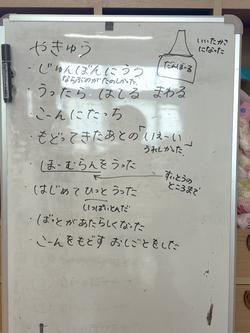 やきゅう
いいたかさ
になった
だんぼーる
・じゅんばんにうつ
ならぶのがたのしかった。
うったら はしる まわる
こーんにたっち
・もどってきたあとの「いぇーい」
うれしかった
・ほーむらんをうった
すいとうの
ところまで
はじめて ひっとうった
いっぱいとんだ
・ばっとがあたらしくなった
・こーんをもどす おしごとをした